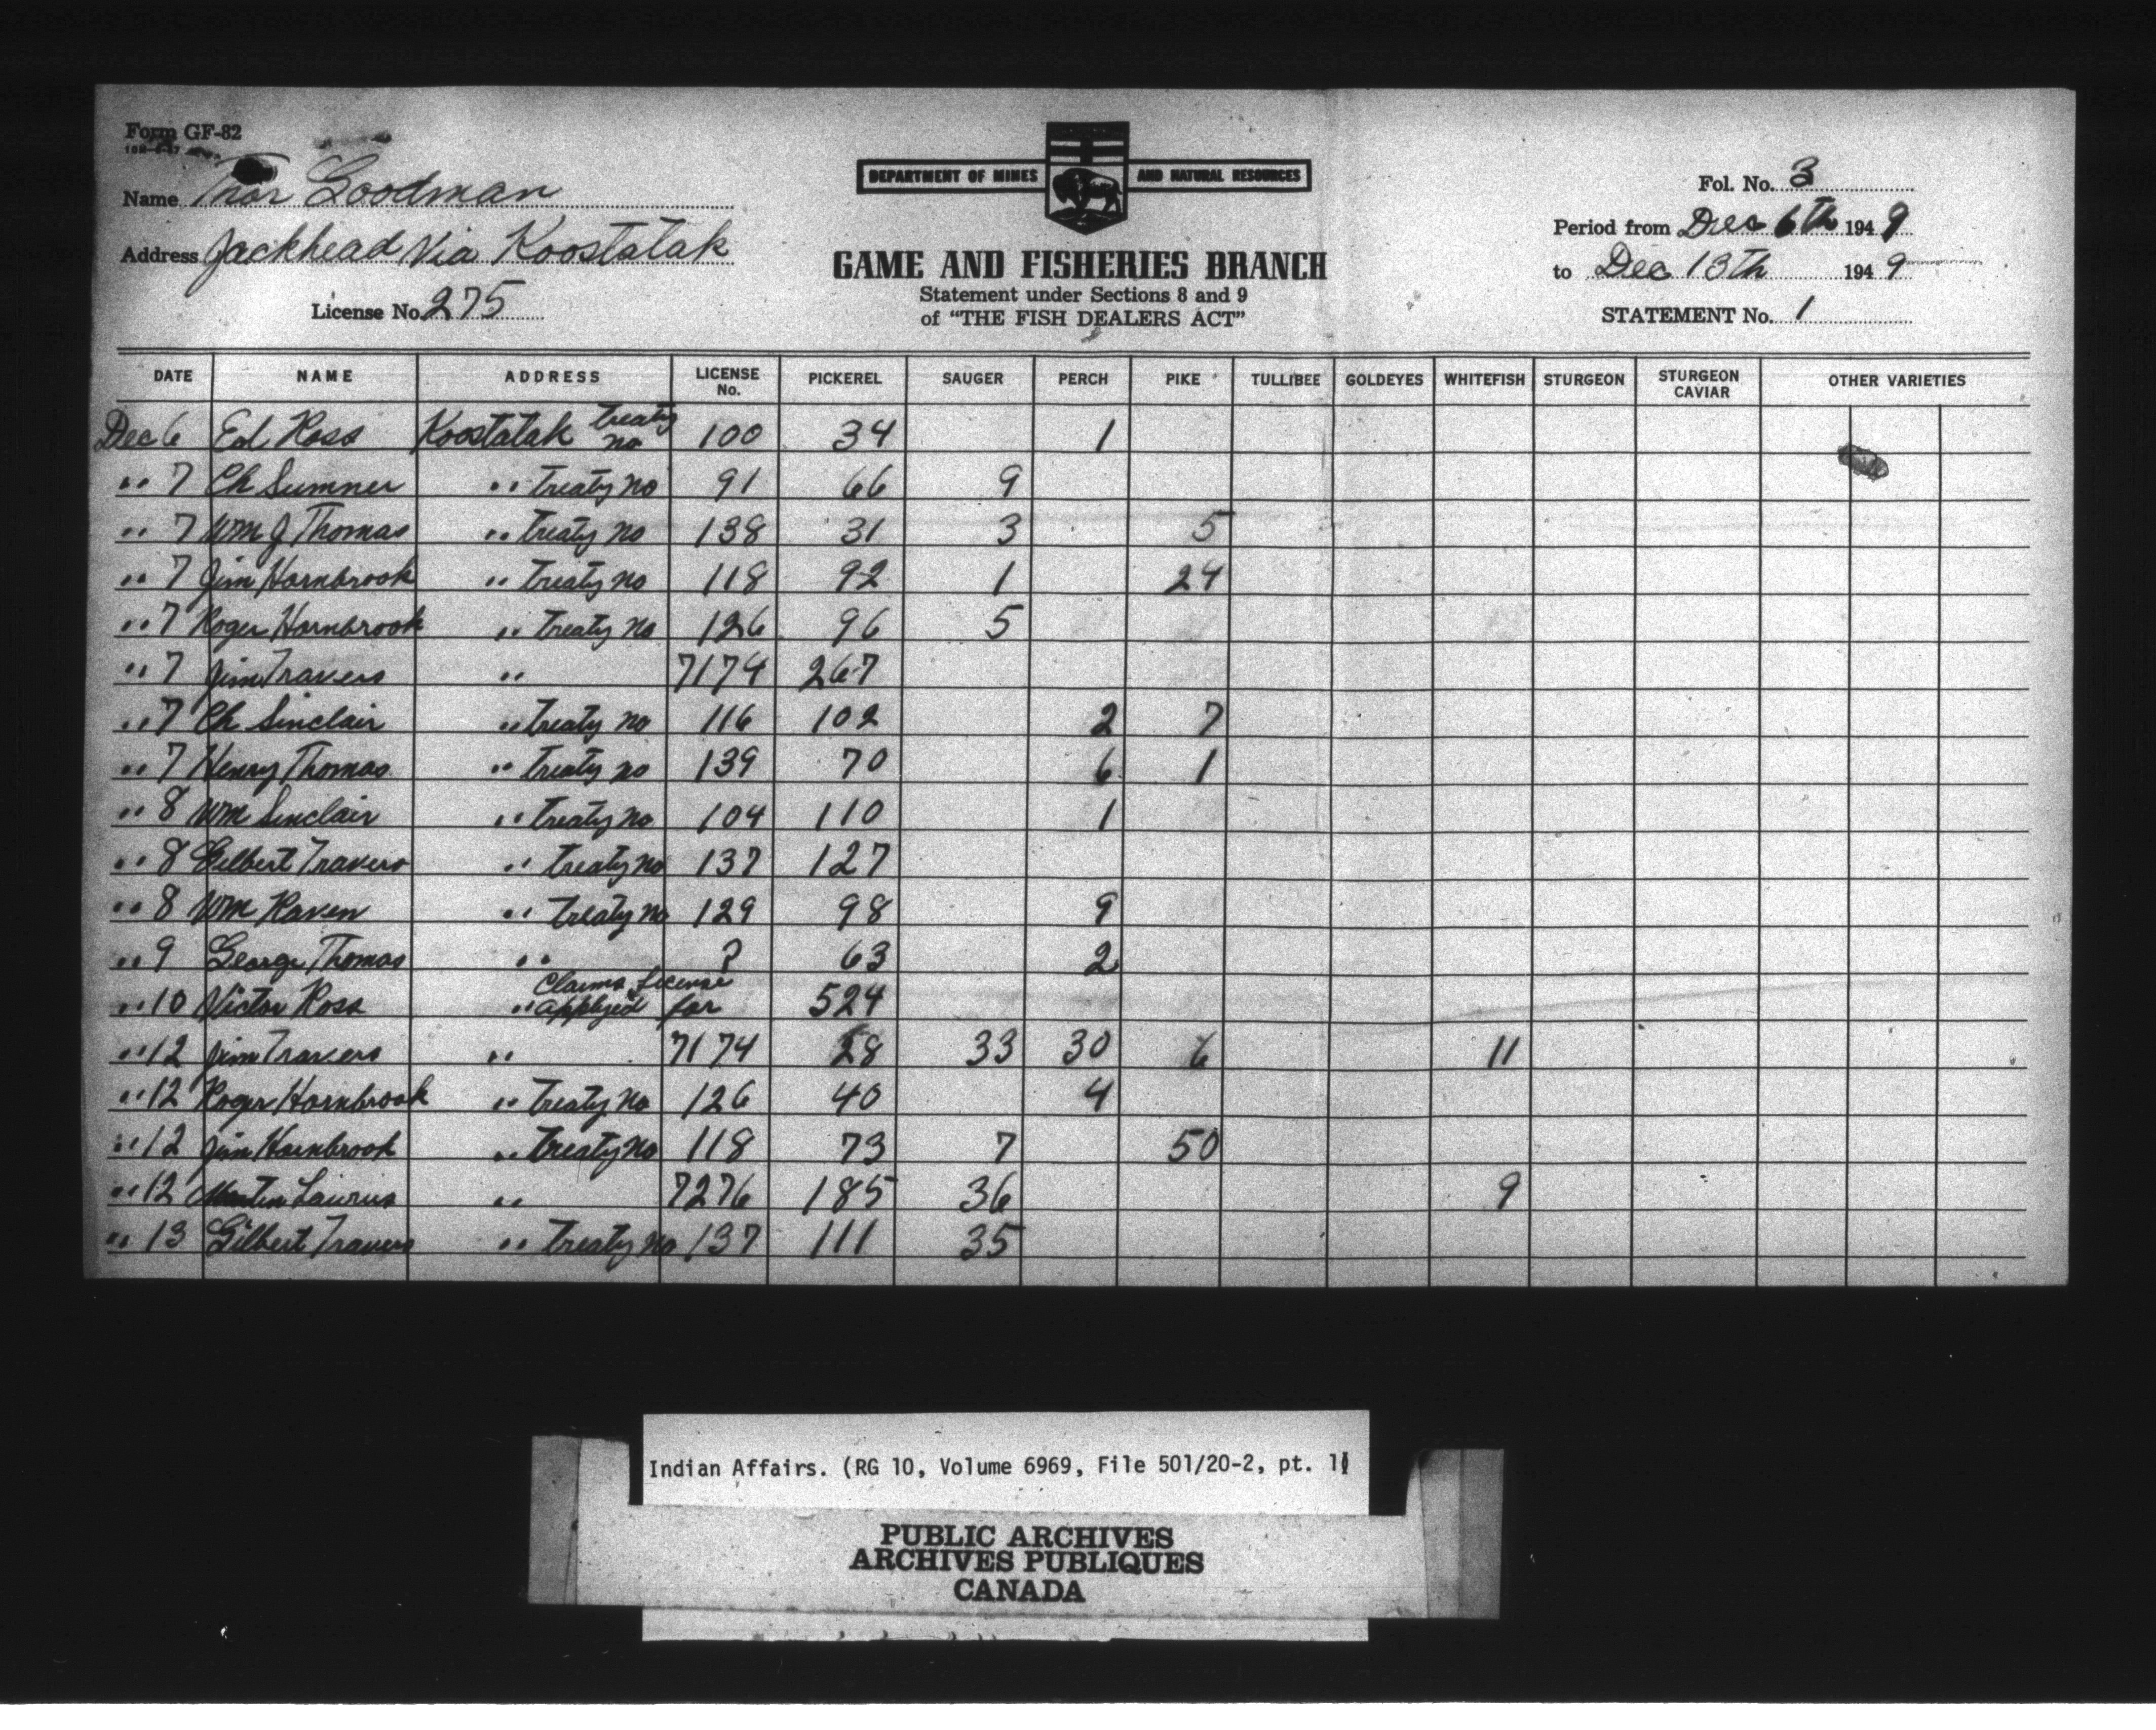 Form GF-82
Name Thor Goodman
Address Jackhead Via Koostatak
License No. 275
DEPARTMENT OF MINES AND NATURAL RESOURCES
GAME AND FISHERIES BRANCH
Statement under Sections 8 and 9
of "THE FISH DEALERS ACT"
Fol. No. 3
Period from Dec 6th 1949
to Dec 13th 1949
STATEMENT No. 1
DATE NAME ADDRESS LICENSE No. PICKEREL SAUGER PERCH PIKE TULLIBEE GOLDEYES WHITEFISH STURGEON STURGEON CAVIAR OTHER VARIETIES
Dec 6 Ed Ross Koostatak treaty no 100 34 1
" 7 Ch Sumner " treaty no 91 66 9
" 7 Wm J Thomas " treaty no 138 31 3 5
" 7 Jim Hornbrook " treaty no 118 92 1 24
" 7 Roger Hornbrook " treaty no 126 96 5
" 7 Jim Travers " 7174 267
" 7 Ch Sinclair " treaty no 116 102 2 7
" 7 Henry Thomas " treaty no 139 70 6 1
" 8 Wm Sinclair " treaty no 104 110 1
" 8 Gilbert Travers " treaty no 137 127
" 8 Wm Raven " treaty no 129 98 9
" 9 George Thomas " ? 63 2
" 10 Victor Ross " Claims License applyed for 524
" 12 Jim Travers " 7174 28 33 30 6 11
" 12 Roger Hornbrook " treaty no 126 40 4
" 12 Jim Hornbrook " treaty no 118 73 7 50
" 12 " 7276 185 36 9
" 13 Gilbert Travers " treaty no 137 111 35
Indian Affairs. (RG 10, Volume 6969, File 501/20-2, pt. 1
PUBLIC ARCHIVES
ARCHIVES PUBLIQUES
CANADA